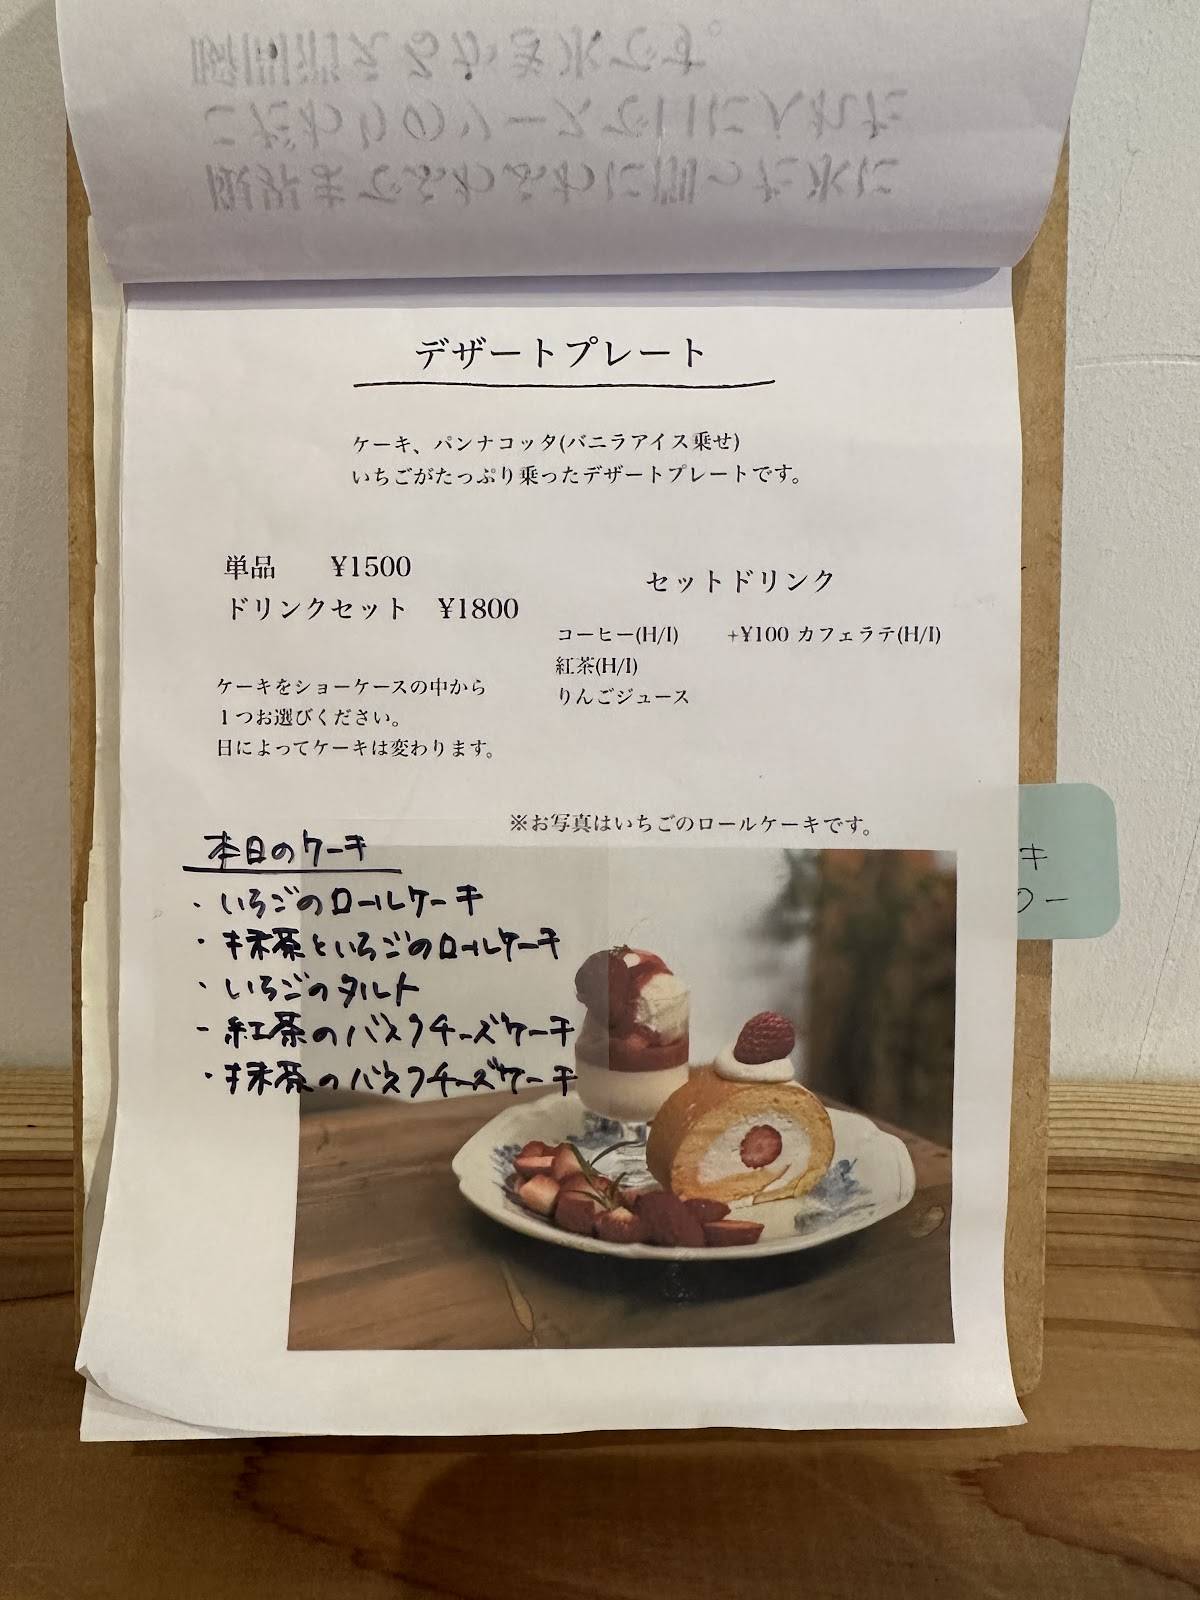 瞬間消えるかき氷です。
こだわりのソースで口に入れた
限界までふわふわに削った氷に
デザートプレート
ケーキ、パンナコッタ(バニラアイス乗せ)
いちごがたっぷり乗ったデザートプレートです。
単品 ¥1500
ドリンクセット ¥1800
ケーキをショーケースの中から
1つお選びください。
日によってケーキは変わります。
セットドリンク
コーヒー(H/I) +¥100 カフェラテ(H/I)
紅茶(H/I)
りんごジュース
※お写真はいちごのロールケーキです。
本日のケーキ
・いちごのロールケーキ
・抹茶といちごのロールケーキ
・いちごのタルト
・紅茶のバスクチーズケーキ
・抹茶のバスクチーズケーキ
キ
ー